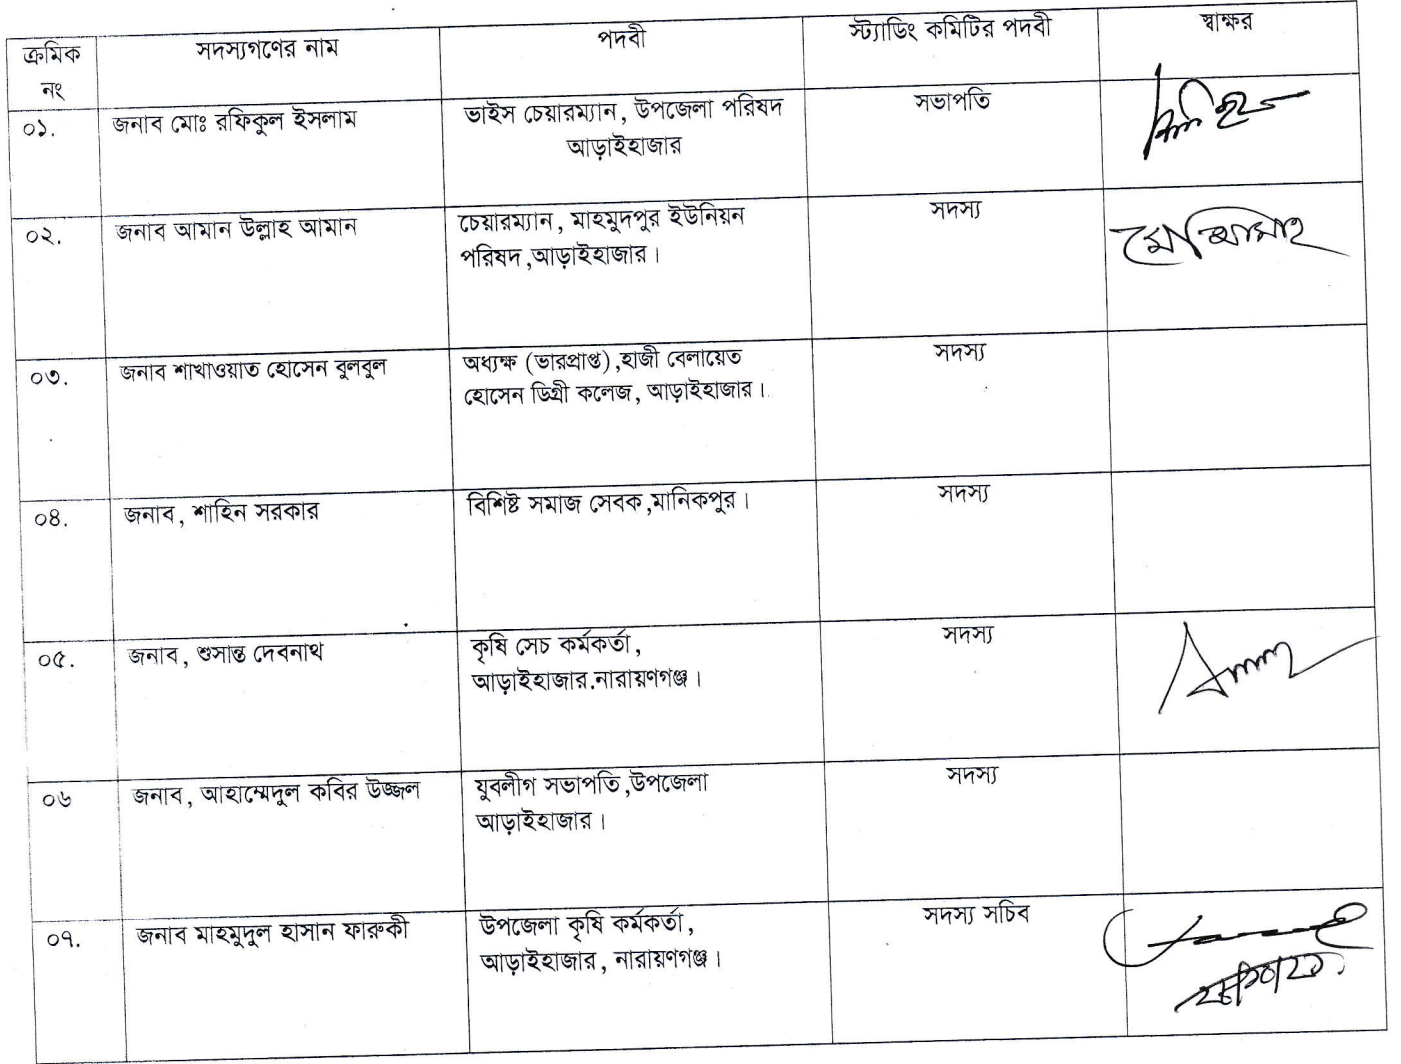 ক্রমিক নং সদস্যগণের নাম পদবী স্ট্যাডিং কমিটির পদবী স্বাক্ষর
০১. জনাব মোঃ রফিকুল ইসলাম ভাইস চেয়ারম্যান, উপজেলা পরিষদ সভাপতি
আড়াইহাজার
০২. জনাব আমান উল্লাহ আমান চেয়ারম্যান, মাহমুদপুর ইউনিয়ন সদস্য
পরিষদ ,আড়াইহাজার।
০৩. জনাব শাখাওয়াত হোসেন বুলবুল অধ্যক্ষ (ভারপ্রাপ্ত) ,হাজী বেলায়েত সদস্য
হোসেন ডিগ্রী কলেজ, আড়াইহাজার।
০৪. জনাব, শাহিন সরকার বিশিষ্ট সমাজ সেবক ,মানিকপুর। সদস্য
০৫. জনাব, শুসান্ত দেবনাথ কৃষি সেচ কর্মকর্তা, সদস্য
আড়াইহাজার.নারায়ণগঞ্জ।
০৬ জনাব, আহাম্মেদুল কবির উজ্জল যুবলীগ সভাপতি ,উপজেলা সদস্য
আড়াইহাজার।
০৭. জনাব মাহমুদুল হাসান ফারুকী উপজেলা কৃষি কর্মকর্তা, সদস্য সচিব
আড়াইহাজার, নারায়ণগঞ্জ।